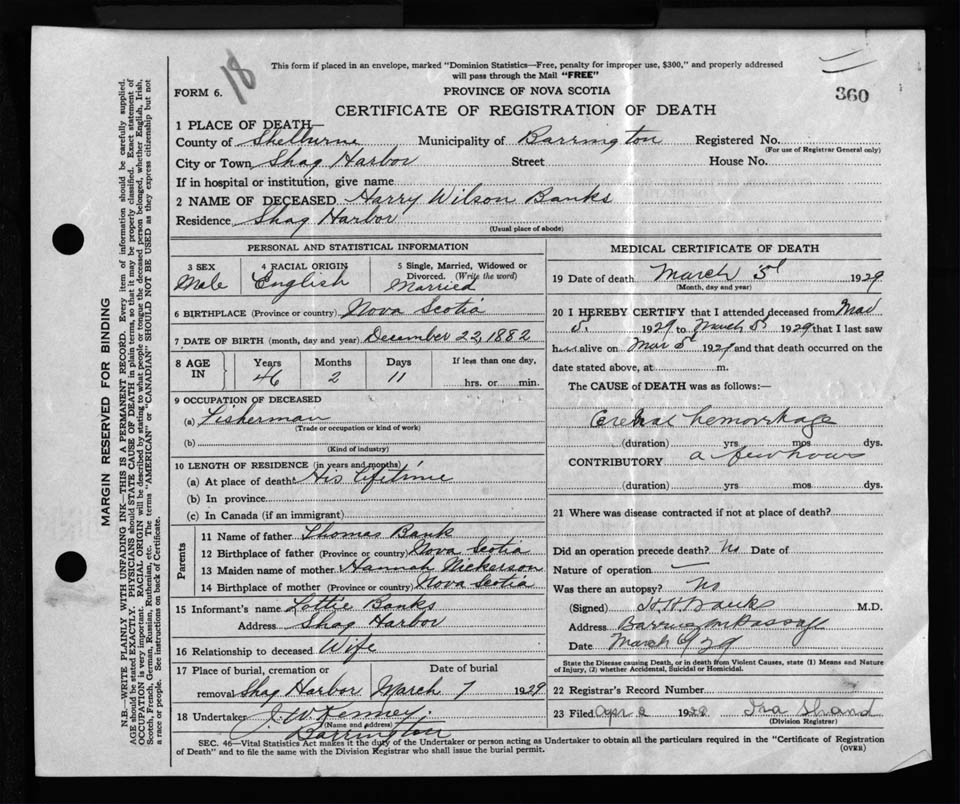 18
This form if placed in an envelope, marked "Dominion Statistics—Free, penalty for improper use, $300," and properly addressed
will pass through the Mail "FREE"
FORM 6.
PROVINCE OF NOVA SCOTIA
360
CERTIFICATE OF REGISTRATION OF DEATH
1 PLACE OF DEATH—
County of Shelburne Municipality of Barrington Registered No.
(For use of Registrar General only)
City or Town Shag Harbor Street House No.
If in hospital or institution, give name
2 NAME OF DECEASED Harry Wilson Banks
Residence Shag Harbor
(Usual place of abode)
PERSONAL AND STATISTICAL INFORMATION
3 SEX
Male
4 RACIAL ORIGIN
English
5 Single, Married, Widowed or
Divorced. (Write the word)
Married
6 BIRTHPLACE (Province or country) Nova Scotia
7 DATE OF BIRTH (month, day and year) December 22, 1882
8 AGE IN
Years Months Days If less than one day,
46 2 11 hrs. or min.
9 OCCUPATION OF DECEASED
(a) Fisherman
(Trade or occupation or kind of work)
(b)
(Kind of industry)
10 LENGTH OF RESIDENCE (in years and months)
(a) At place of death His lifetime
(b) In province
(c) In Canada (if an immigrant)
Parents
11 Name of father Thomas Bank
12 Birthplace of father (Province or country) Nova Scotia
13 Maiden name of mother Hannah Nickerson
14 Birthplace of mother (Province or country) Nova Scotia
15 Informant's name Lottie Banks
Address Shag Harbor
16 Relationship to deceased Wife
17 Place of burial, cremation or Date of burial
removal Shag Harbor March 7 1929
18 Undertaker J. W. Kinney.
(Name and address)
Barrington
MEDICAL CERTIFICATE OF DEATH
19 Date of death March 5 1929
(Month, day and year)
20 I HEREBY CERTIFY that I attended deceased from Mar
5. 1929 to March 5 1929 that I last saw
him alive on Mar 5 1929 and that death occurred on the
date stated above, at m.
The CAUSE of DEATH was as follows:—
hemorrhage
(duration) yrs mos dys.
CONTRIBUTORY a few hours
(duration) yrs mos dys.
21 Where was disease contracted if not at place of death?
Did an operation precede death? No Date of
Nature of operation —
Was there an autopsy? No
(Signed) Banks M.D.
Address Barrington Passage
Date March 6/29
State the Disease causing Death, or in death from Violent Causes, state (1) Means and Nature
of Injury, (2) whether Accidental, Suicidal or Homicidal.
22 Registrar's Record Number
23 Filed Apr 2 1929 Ira Shand
(Division Registrar)
SEC. 46—Vital Statistics Act makes it the duty of the Undertaker or person acting as Undertaker to obtain all the particulars required in the "Certificate of Registration
of Death" and to file the same with the Division Registrar who shall issue the burial permit.
(OVER)
MARGIN RESERVED FOR BINDING
N.B.—WRITE PLAINLY WITH UNFADING INK—THIS IS A PERMANENT RECORD. Every item of information should be carefully supplied.
AGE should be stated EXACTLY. PHYSICIANS should STATE CAUSE OF DEATH in plain terms, so that it may be properly classified. Exact statement of
OCCUPATION is very important. RACIAL ORIGIN will be described by stating to what people or tongue the deceased person belonged, whether English, Irish,
Scotch, French, German, Russian, Ruthenian, etc. The terms "AMERICAN" or "CANADIAN" SHOULD NOT BE USED as they express citizenship but not
a race or people. See instructions on back of Certificate.